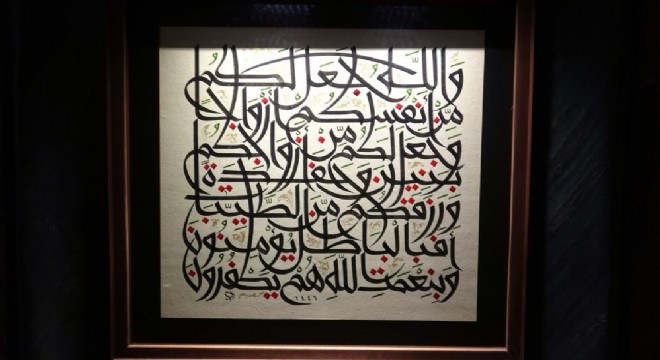 والله جعل لكم
من أنفسكم أزواجا
وجعل لكم من أزواجكم
بنين وحفدة
ورزقكم من الطيبات
أفبالباطل يؤمنون
وبنعمت الله هم يكفرون
١٤٤٦